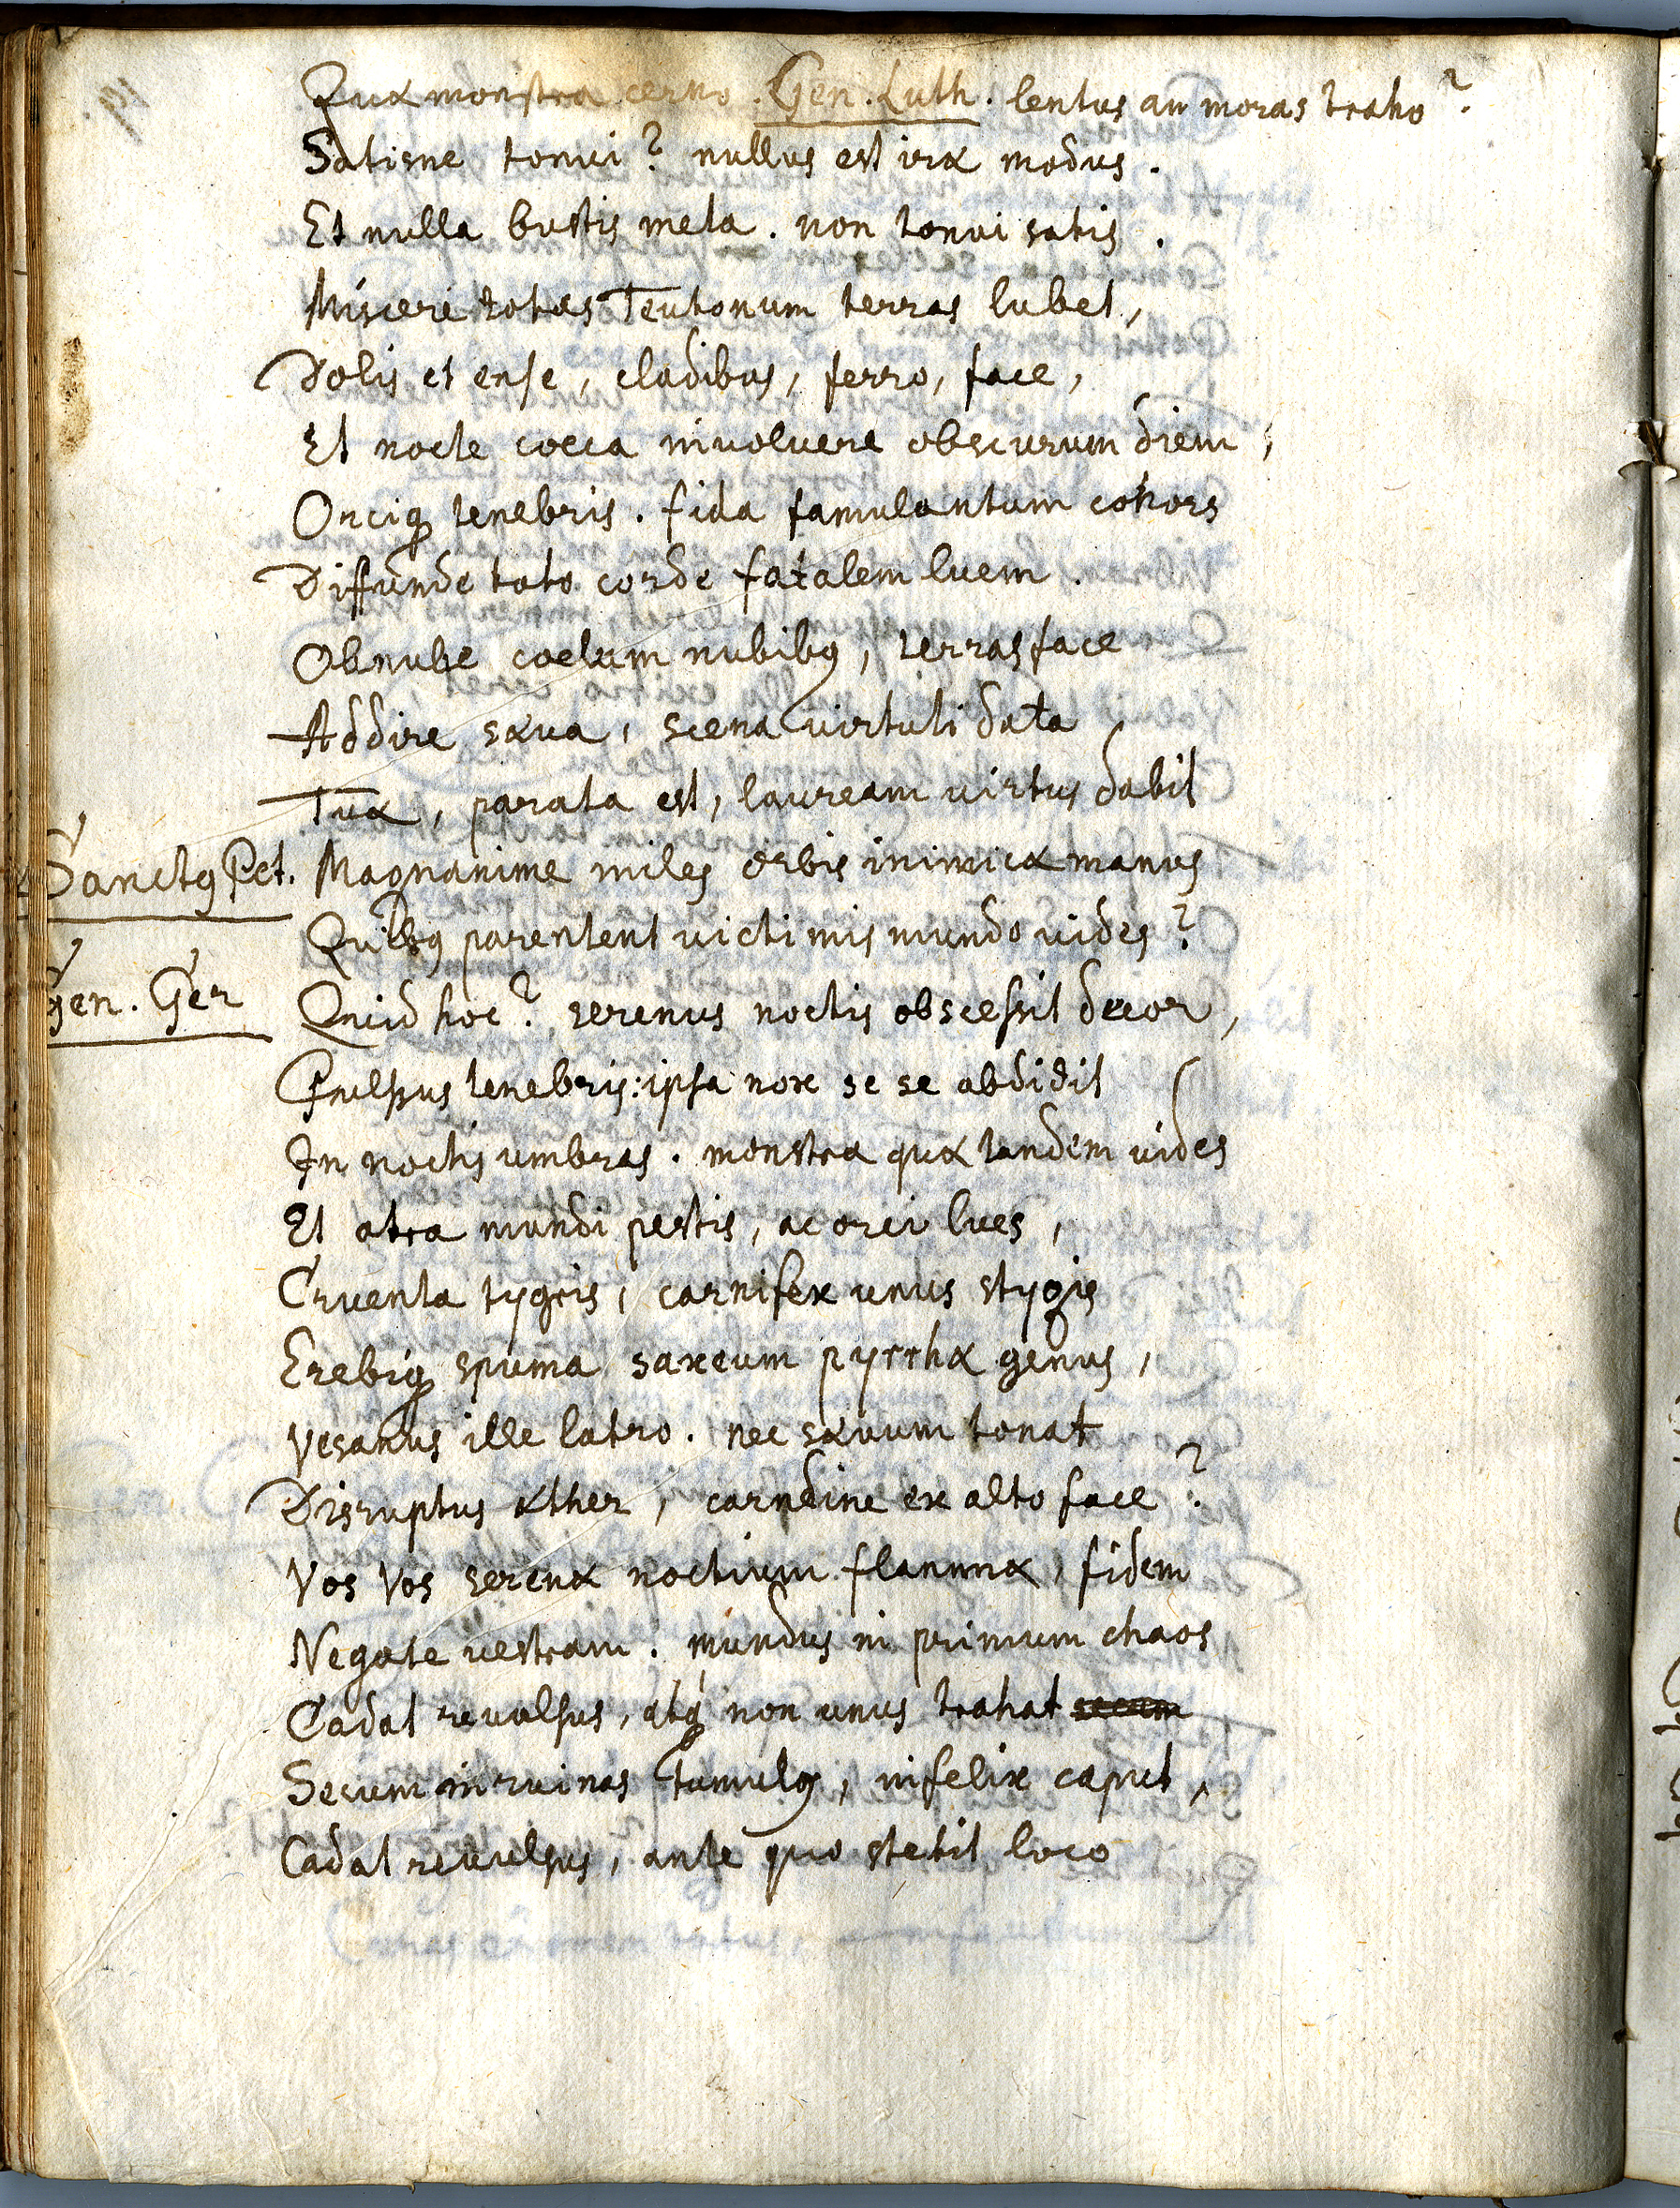 Quæ monstra cerno. Gen. Luth. lentus an moras traho?
Satisne tonui? nullus est iræ modus.
Et nulla bustis meta. non tonui satis.
Misceri totas Teutonum terras lubet,
Dolis et ense, cladibus, ferro, face,
Et nocte coeca involvere obscurum diem,
Orciq tenebris. fida famulantum cohors
Diffunde toto corde fatalem luem.
Obnube coelum nubibq, terras face
Addire sæua, scena virtuti data
Tuæ, parata est, lauream virtus dabit
Sanctq Pet. Magnanime miles orbis inimicæ manus
Quibq parentent victimis mundo vides?
Gen. Ger Quid hoc? serenus noctis obscessit decor,
Pulsus tenebris: ipsa nox se se abdidit
In noctis umbras. monstra quæ tandem vides
Et atra mundi pestis, ac orci lues,
Cruenta tygris, carnifex unus stygis
Erebiq spuma saxeum pyrrhæ genus,
Vesanus ille latro. nec sæuum tonat
Disruptus æther, carndine ex alto face?
Vos Vos serenæ noctium flammæ, fidem
Negate vestram. mundus in primum chaos
Cadat revulsus, atq non unus trahat secum
Secum in ruinas tumulq, infelix caput,
Cadat revulsus, ante quo stetit loco